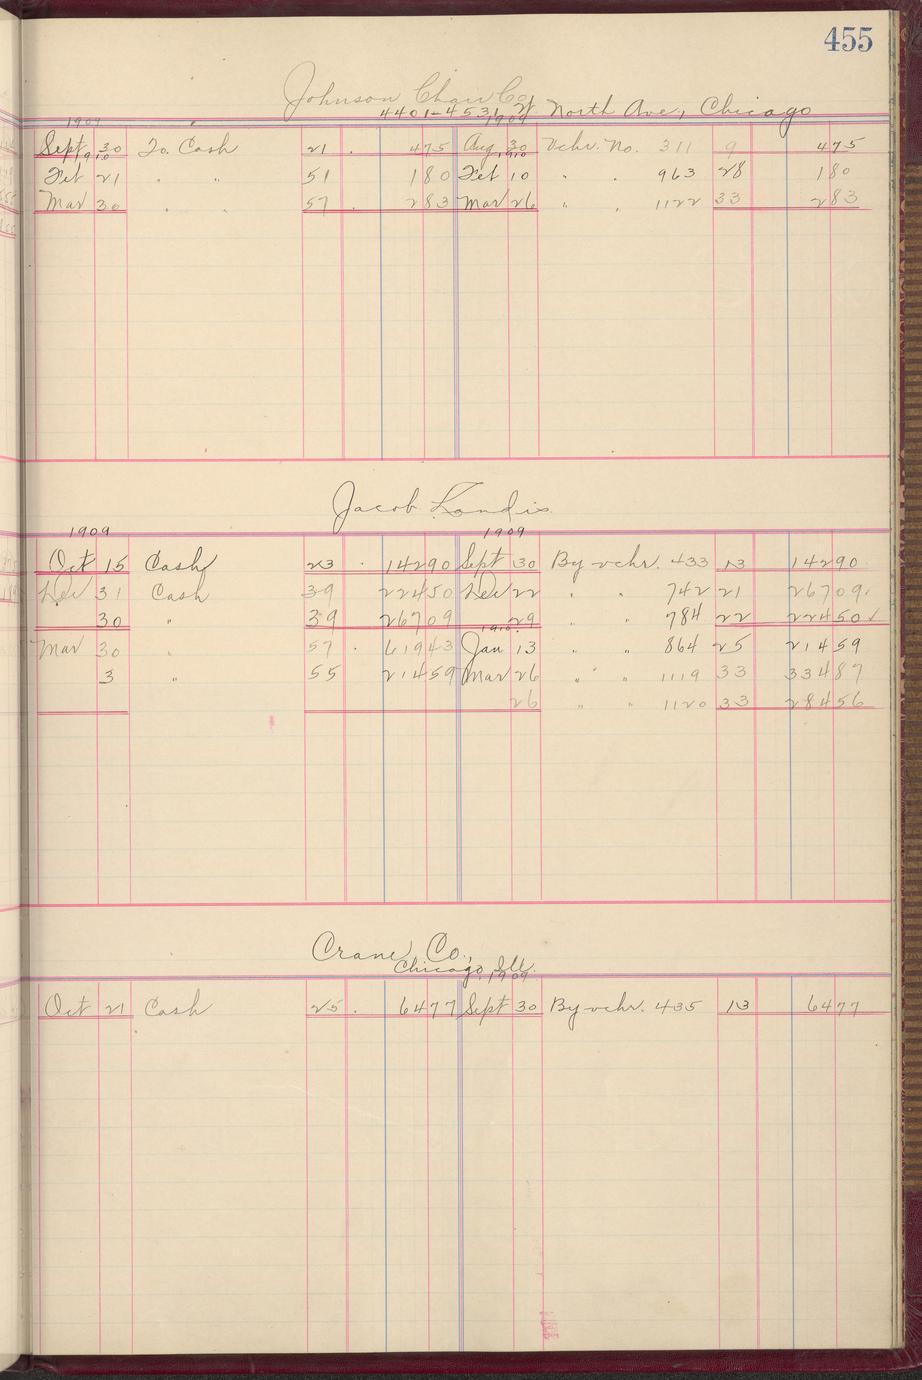 455
Johnson Chair Co.
4401-4531 W North Ave, Chicago
1909 1909
Sept 30 To Cash 21 . 475 Aug 30 Vchr. No. 311 9 475
1910 1910
Feb 21 " " 51 180 Feb 10 " " 963 28 180
Mar 30 " " 57 . 283 Mar 26 " " 1122 33 283
Jacob Landis
1909 1909
Oct 15 Cash 23 . 14290 Sept 30 By vchr. 433 13 14290
Dec 31 Cash 39 22450 Dec 22 " " 742 21 26709
30 " 39 26709 29 " " 784 22 22450 ✓
1910
Mar 30 " 57 . 61943 Jan 13 " " 864 25 21459
3 " 55 21459 Mar 26 " " 1119 33 33487
26 " " 1120 33 28456
Crane Co.,
Chicago, Ill.
1909
Oct 21 Cash 25 . 6477 Sept 30 By vchr. 435 13 6477